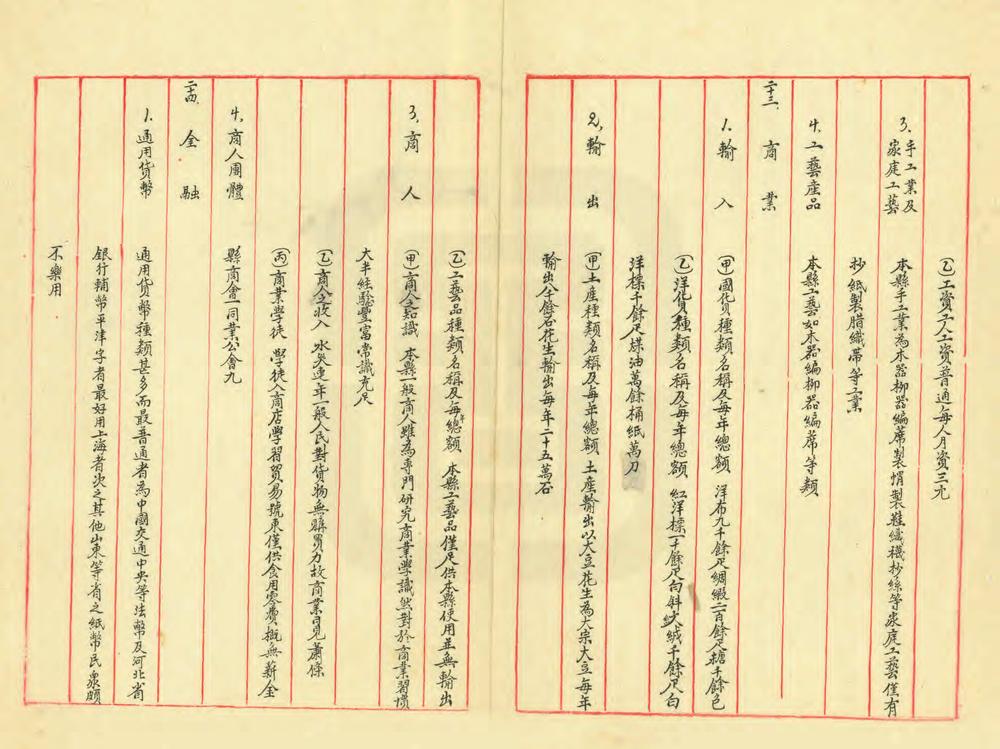 ㊁工資工人工資普通每人月資三元
3.手工業及家庭工藝 本縣手工業為木器柳器編蓆製帽製鞋織襪抄絲等家庭工藝僅有
抄紙製腊織帶等工業
4.工藝產品 本縣工藝如木器編柳器編蓆等類
二十三、商業
1.輸入 ㊙(甲)國貨種類名稱及每年總額 洋布九千餘疋綢緞二百餘疋糖千餘包
(乙)洋貨種類名稱及每年總額 紅洋標一千餘疋白斜文絨千餘疋白
洋標千餘疋煤油萬餘桶紙萬刀
2.輸出 (甲)土產種類名稱及每年總額 土產輸出以大豆花生為大宗大豆每年
輸出八千餘石花生輸出每年二十五萬石
(乙)工藝品種類名稱及每年總額 本縣工藝品僅足供本縣使用並無輸出
3.商人 (甲)商人之知識 本縣一般商人雖為專門研究商業學識然對於商業習慣
大半經驗豐富常識充足
(乙)商人之收入 水災連年一般人民對貨物無購買力故商業日見蕭條
(丙)商業學徒 學徒入商店學習貿易號東僅供食用零費概無薪金
4.商人團體 縣商會一同業公會九
二十四、金融
1.通用貨幣 通用貨幣種類甚多而最普通者為中國交通中央等法幣及河北省
銀行輔幣平津字者最好用上海者次之其他山東等省之紙幣民眾頗
不樂用